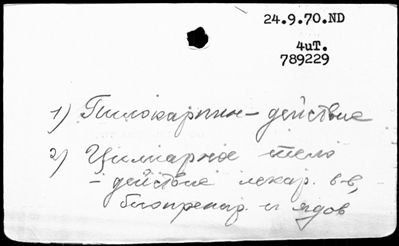 24.9.70.ND
4иT.
789229
1) Пилокарпин – действие
2) Цилиарное тело
– действие лекар. в-в,
биопрепар. и ядов